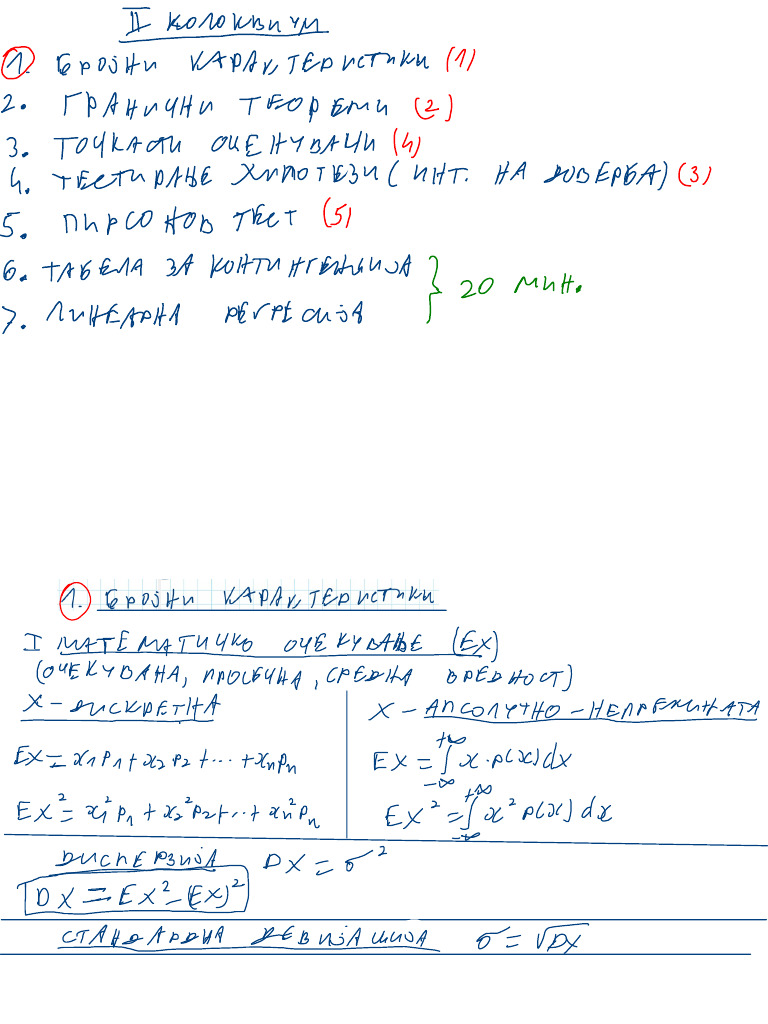 II КОЛОКВИУМ
1. БРОЈНИ КАРАКТЕРИСТИКИ (1)
2. ГРАНИЧНИ ТЕОРЕМИ (2)
3. ТОЧКАСТИ ОЦЕНУВАЧИ (4)
4. ТЕСТИРАЊЕ ХИПОТЕЗИ (ИНТ. НА ДОВЕРБА) (3)
5. ПИРСОНОВ ТЕСТ (5)
6. ТАБЕЛА ЗА КОНТИНГЕНЦИЈА
7. ЛИНЕАРНА РЕГРЕСИЈА
20 МИН.
1. БРОЈНИ КАРАКТЕРИСТИКИ
I МАТЕМАТИЧКО ОЧЕКУВАЊЕ (EX)
(ОЧЕКУВАНА, ПРОСЕЧНА, СРЕДНА ВРЕДНОСТ)
X - ДИСКРЕТНА
EX = x₁p₁ + x₂p₂ + ... + xₙpₙ
EX² = x₁²p₁ + x₂²p₂ + ... + xₙ²pₙ
X - АПСОЛУТНО - НЕПРЕКИНАТА
EX = ∫_{-∞}^{+∞} x·p(x)dx
EX² = ∫_{-∞}^{+∞} x² p(x) dx
ДИСПЕРЗИЈА DX = σ²
DX = EX² - (EX)²
СТАНДАРДНА ДЕВИЈАЦИЈА σ = √DX